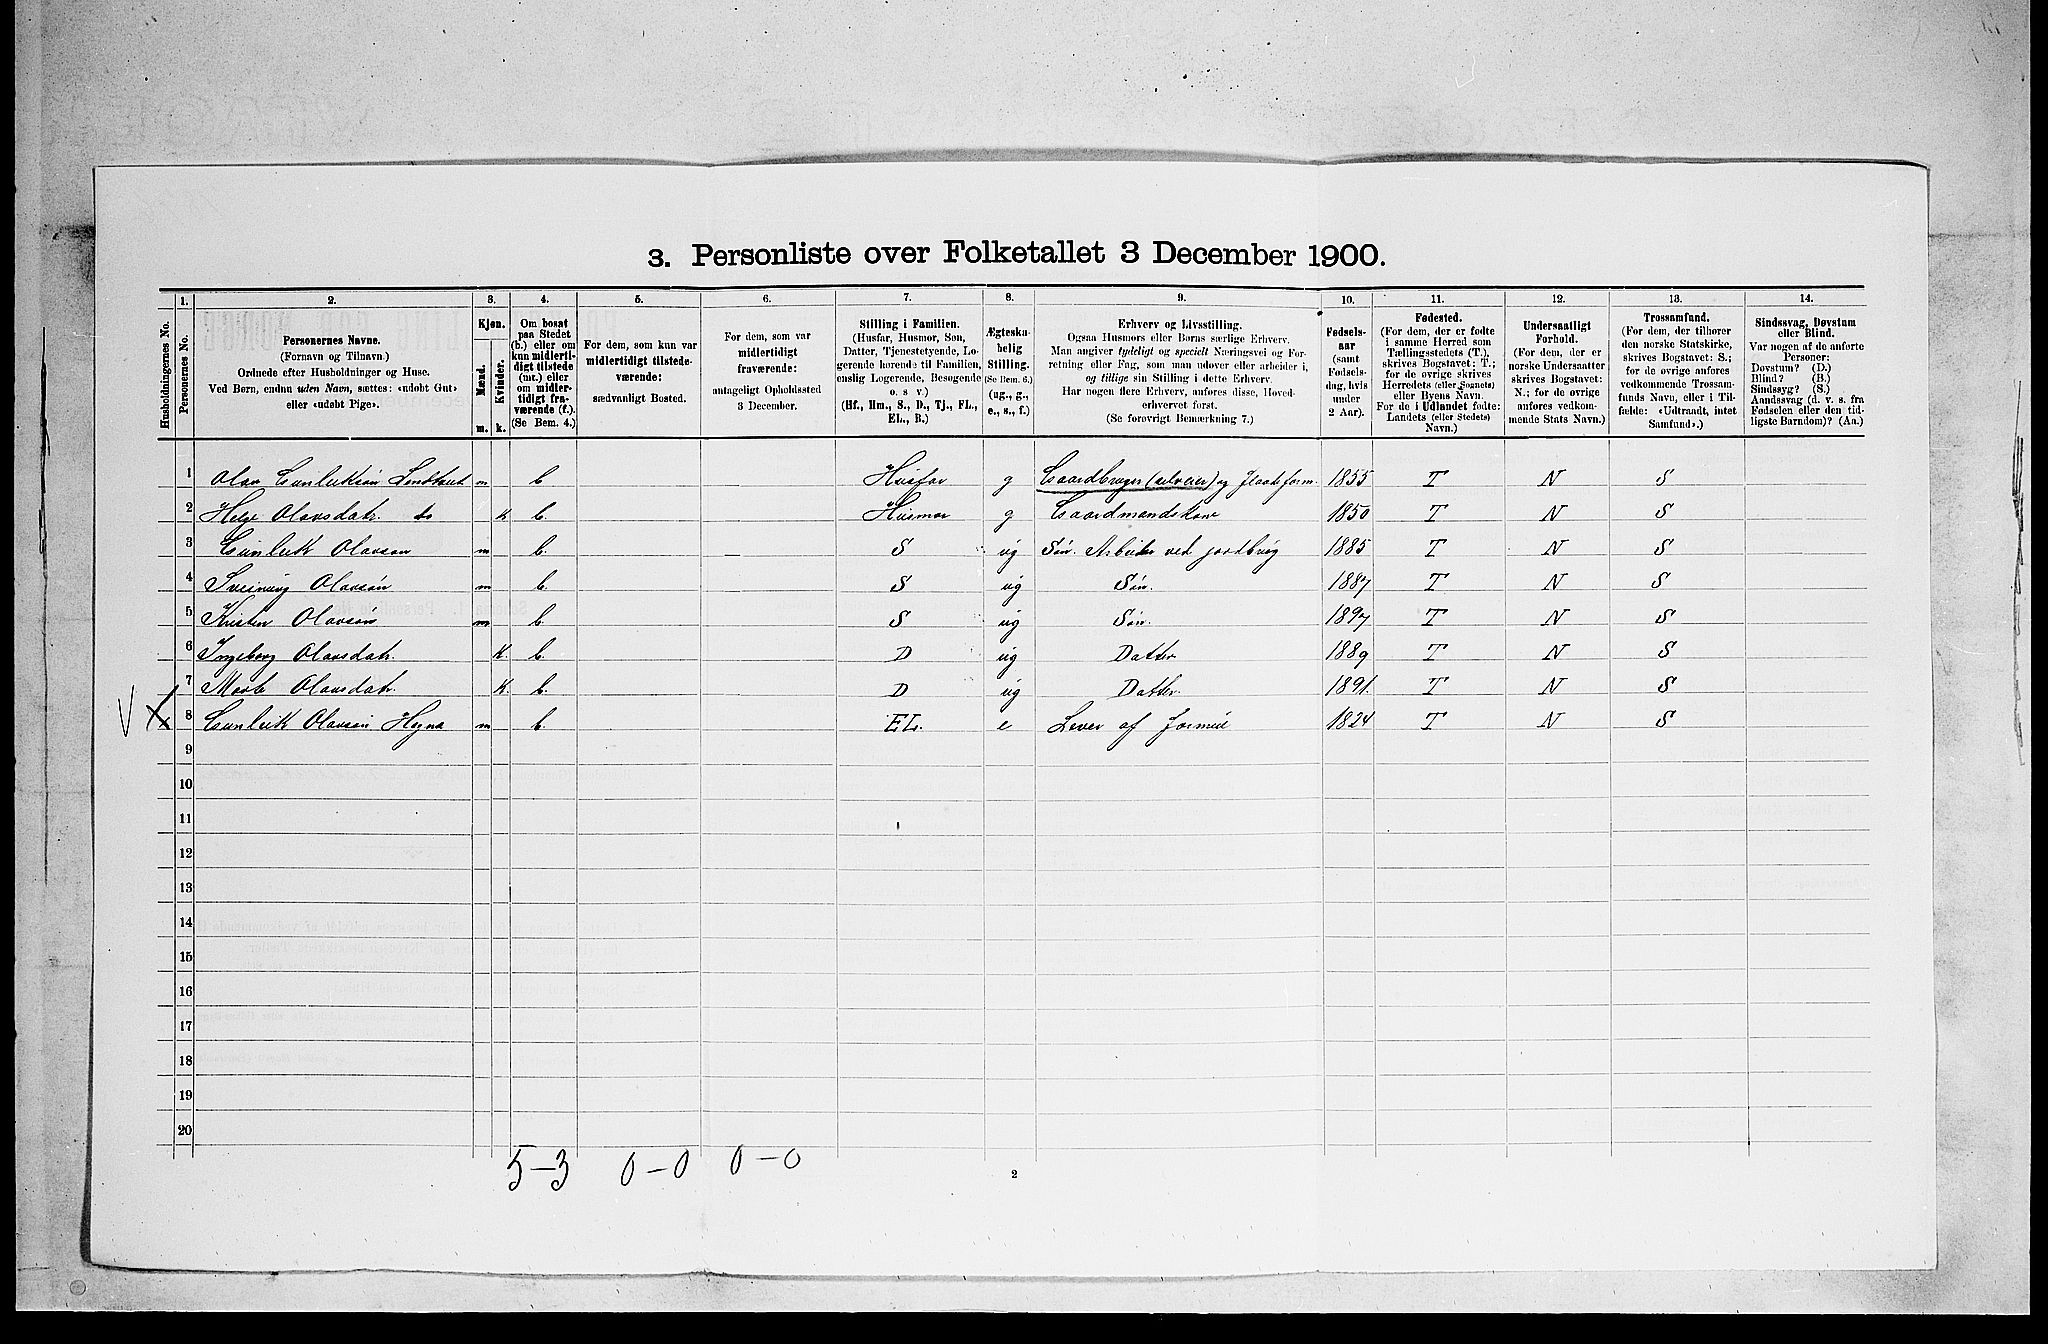 3. Personliste over Folketallet 3 December 1900.
1. 2. 3. 4. 5. 6. 7. 8. 9. 10. 11. 12. 13. 14.
Husholdningernes No.
Personernes No.
Personernes Navne.
(Fornavn og Tilnavn.)
Ordnede efter Husholdninger og Huse.
Ved Børn, endnu uden Navn, sættes: «udøbt Gut»
eller «udøbt Pige».
Kjøn.
Mænd.
Kvinder.
m. k.
Om bosat
paa Stedet
(b.) eller om
kun midlerti-
digt tilstede
(mt.) eller
om midler-
tidigt fra-
værende (f.).
(Se Bem. 4.)
For dem, som kun var
midlertidigt tilstede-
værende:
sædvanligt Bosted.
For dem, som var
midlertidigt
fraværende:
antageligt Opholdssted
3 December.
Stilling i Familien.
(Husfar, Husmor, Søn,
Datter, Tjenestetyende, Lo-
gerende hørende til Familien,
enslig Logerende, Besøgende
o. s. v.)
(Hf., Hm., S., D., Tj., FL.,
EL., B.)
Ægteska-
belig
Stilling.
(Se Bem. 6.)
(ug., g.,
e., s., f.)
Erhverv og Livsstilling.
Ogsaa Husmors eller Børns særlige Erhverv.
Man angiver tydeligt og specielt Næringsvei og For-
retning eller Fag, som man udøver eller arbeider i,
og tillige sin Stilling i dette Erhverv.
Har nogen flere Erhverv, anføres disse, Hoved-
erhvervet først.
(Se forøvrigt Bemærkning 7.)
Fødsels-
aar
(samt
Fødsels-
dag, hvis
under
2 Aar).
Fødested.
(For dem, der er fødte
i samme Herred som
Tællingsstedets (T.),
skrives Bogstavet: T.;
for de øvrige skrives
Herredets (eller Sognets)
eller Byens Navn.
For de i Udlandet fødte:
Landets (eller Stedets)
Navn.)
Undersaatligt
Forhold.
(For dem, der er
norske Undersaatter
skrives Bogstavet:
N.; for de øvrige
anføres vedkom-
mende Stats Navn.)
Trossamfund.
(For dem, der tilhører
den norske Statskirke,
skrives Bogstavet: S.;
for de øvrige anføres
vedkommende Trossam-
funds Navn, eller i Til-
fælde: «Udtraadt, intet
Samfund».)
Sindssvag, Døvstum
eller Blind.
Var nogen af de anførte
Personer:
Døvstum? (D.)
Blind? (B.)
Sindssyg? (S.)
Aandssvag (d. v. s. fra
Fødselen eller den tid-
ligste Barndom)? (Aa.)
1 Olav Gunleiksøn m b Husfar g Gaardbruger (selveier) og 1855 T N S
2 Helge Olavsdatr. do k b. Husmor g Gaardmandskone 1850 T N S
3 Gunleik Olavson m b. – S ug Søn. Arbeider ved jordbrug 1885 T N S
4 Sveinung Olavsøn m b. S ug Søn. 1887 T N S
5 Kristen Olavsøn m b S ug Søn. 1897 T N S
6 Ingeborg Olavsdatr. k. b. D ug Datter 1889 T N S
7 Olavsdatr. k. b. D ug Datter. 1891. T N S
V X 8 Gunleik Olavsøn Hogna m b. EL. e Lever af formue 1824 T N S
9
10
11
12
13
14
15
16
17
18
19
20
5–3 0–0 0–0
2